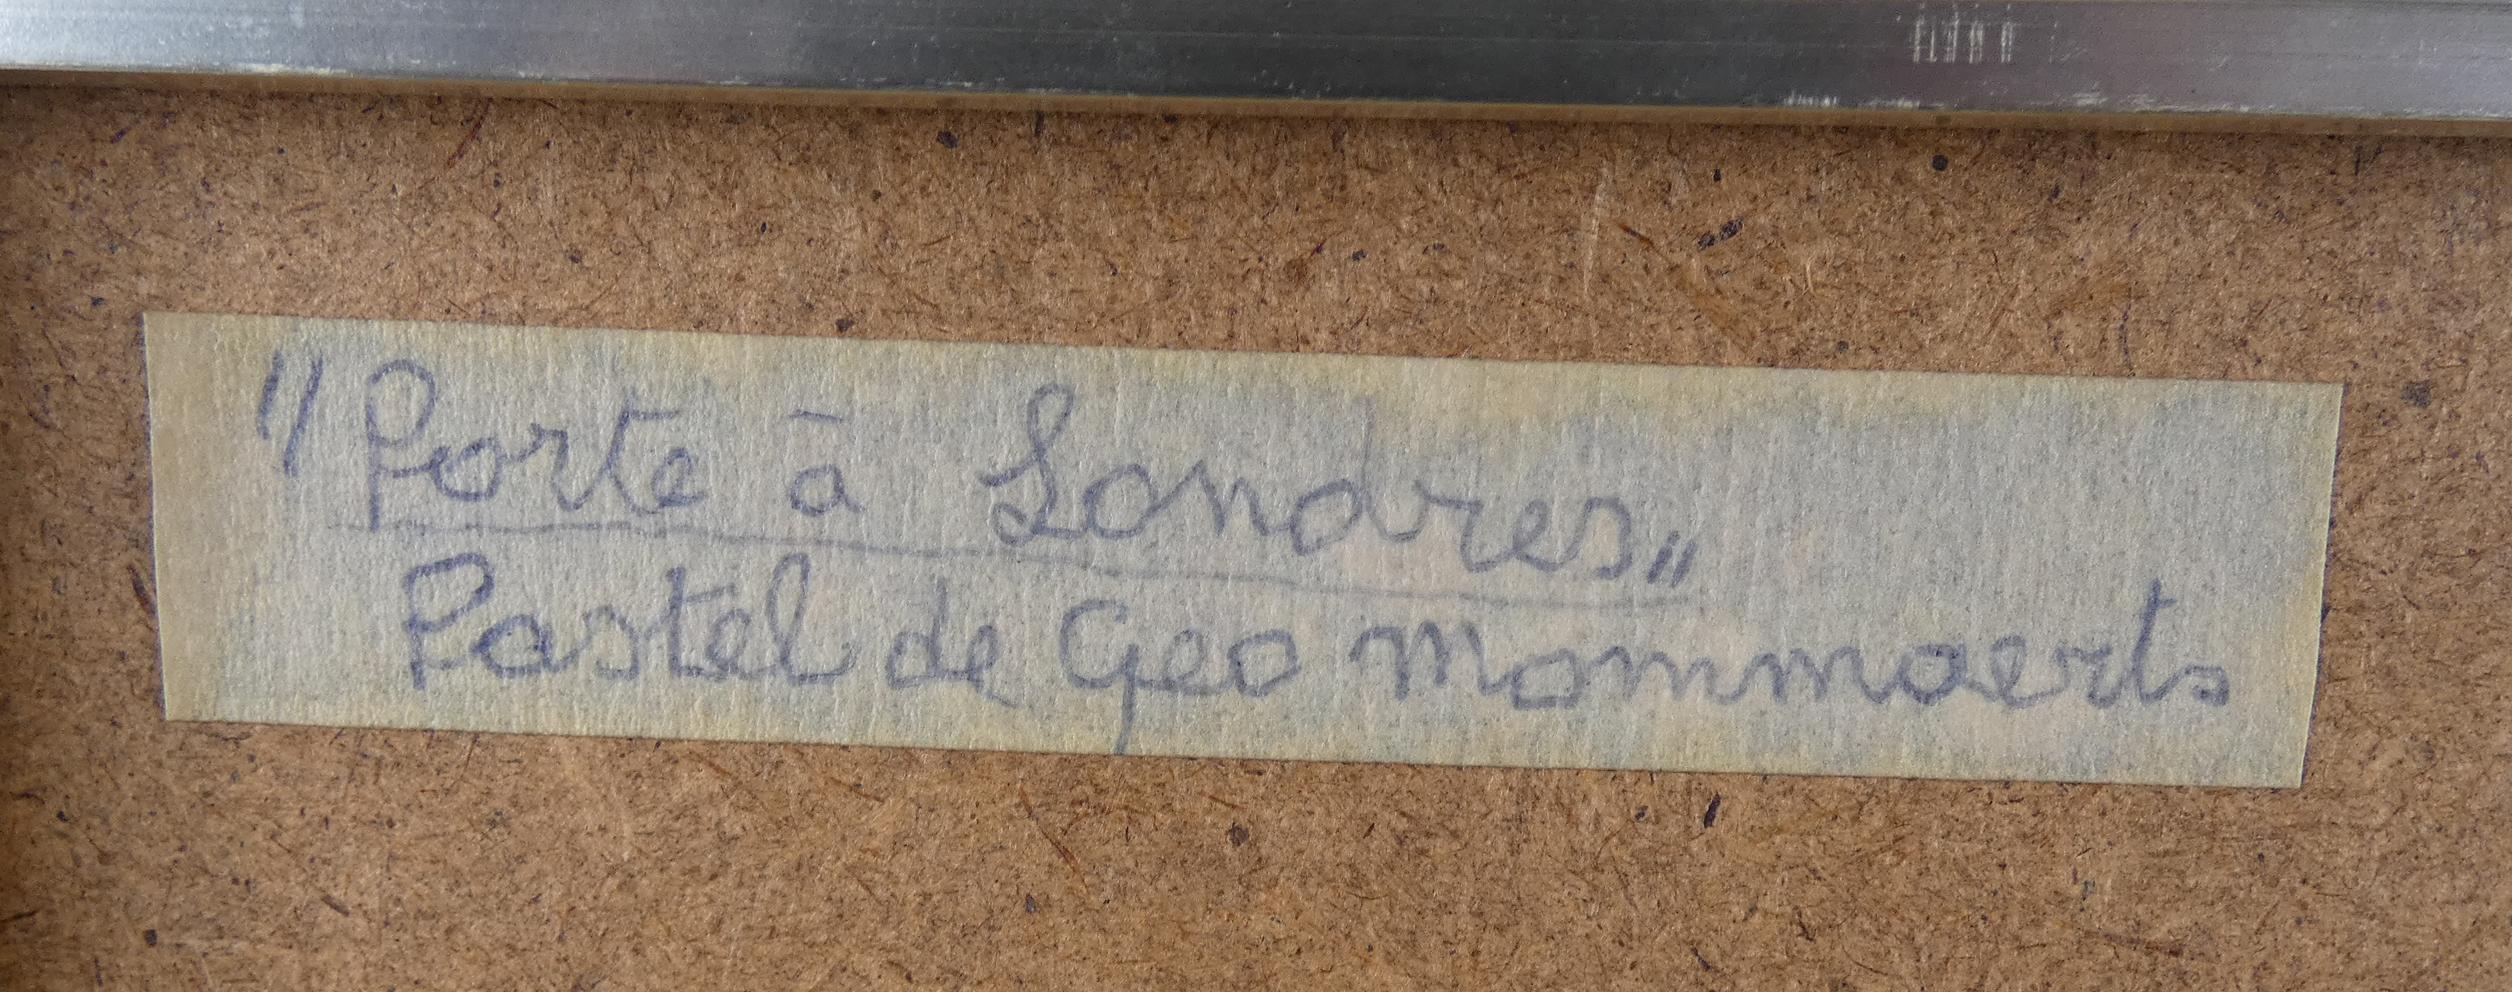 "Porte à Londres"
Pastel de Geo Mommaerts